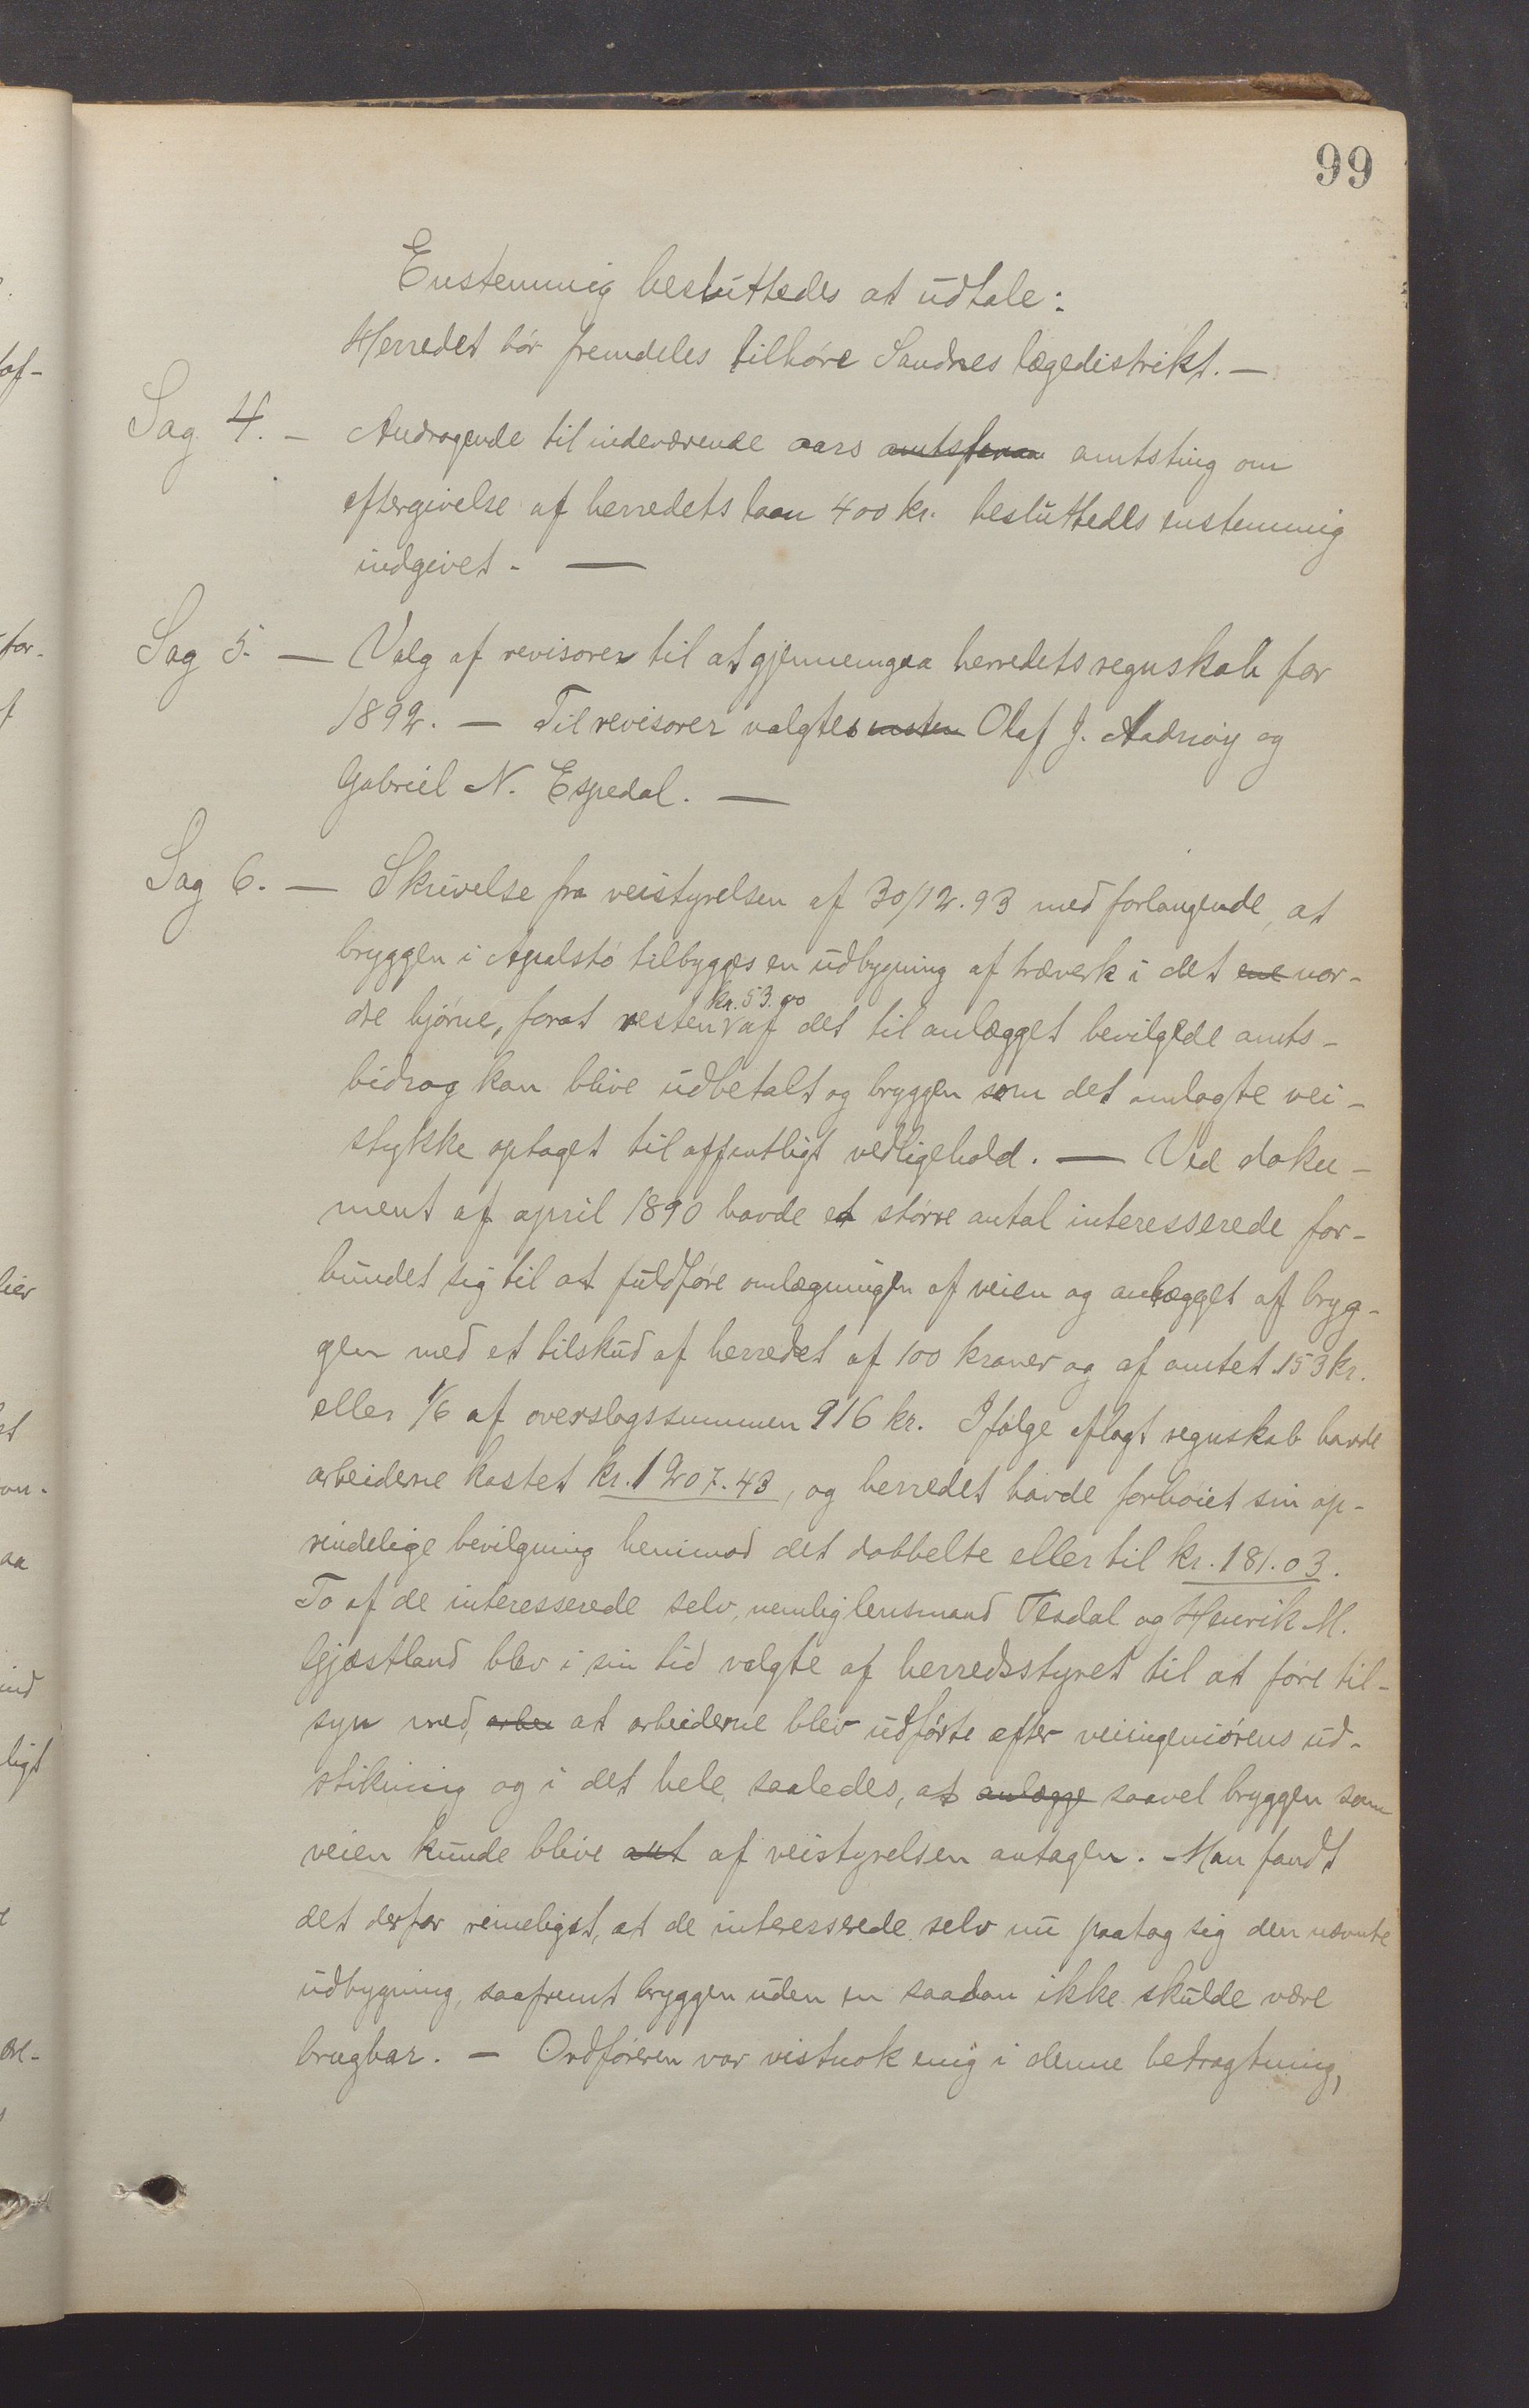 99
Enstemmig besluttedes at udtale:
Herredet bör fremdeles tilhöre Sandnes lægedistrikt. —
Sag 4. — Andragende til indeværende aars amtsting om
eftergivelse af herredets laan 400 kr. besluttedes enstemmig
indgivet. —
Sag 5. — Valg af revisorer til at gjennemgaa herredets regnskab for
1892. — Til revisorer valgtes Olaf J. Aadnöy og
Gabriel N. Espedal. —
Sag 6. — Skrivelse fra veistyrelsen af 30/12.93 med forlangende, at
bryggen i Apalstö tilbygges en udbygning af træverk i det ene nor-
dre hjörne, forat resten kr. 53.00 af det til anlægget bevilgede amts-
bidrag kan blive udbetalt og bryggen som det omlagte vei-
stykke optaget til offentligt vedligehold. — Ved doku-
ment af april 1890 havde et större antal interesserede for-
bundet sig til at fuldföre omlægningen af veien og anlægget af bryg-
gen med et tilskud af herredet af 100 kroner og af amtet 153 kr.
eller 1/6 af overslagssummen 916 kr. Ifölge aflagt regnskab havde
arbeiderne kostet kr. 1207.43, og herredet havde forhöiet sin op-
rindelige bevilgning henimod det dobbelte eller til kr. 181.03.
To af de interesserede selv, nemlig lensmand Tesdal og Henrik M.
Gjæstland blev i sin tid valgte af herredsstyret til at före til-
syn med, arbei at arbeiderne blev udförte efter veiingeniörens ud-
stikning og i det hele saaledes, at anlægge saavel bryggen som
veien kunde blive ant af veistyrelsen antagen. Man fandt
det derfor rimeligst, at de interesserede selv nu paatog sig den nævnte
udbygning, saafremt bryggen uden en saadan ikke skulde være
brugbar. — Ordföreren var vistnok enig i denne betragtning,